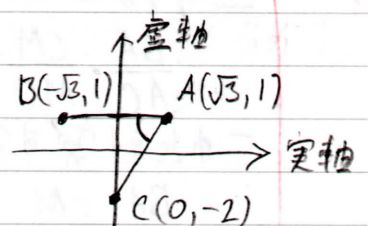 虚軸
B(-√3, 1) A(√3, 1)
実軸
C(0, -2)